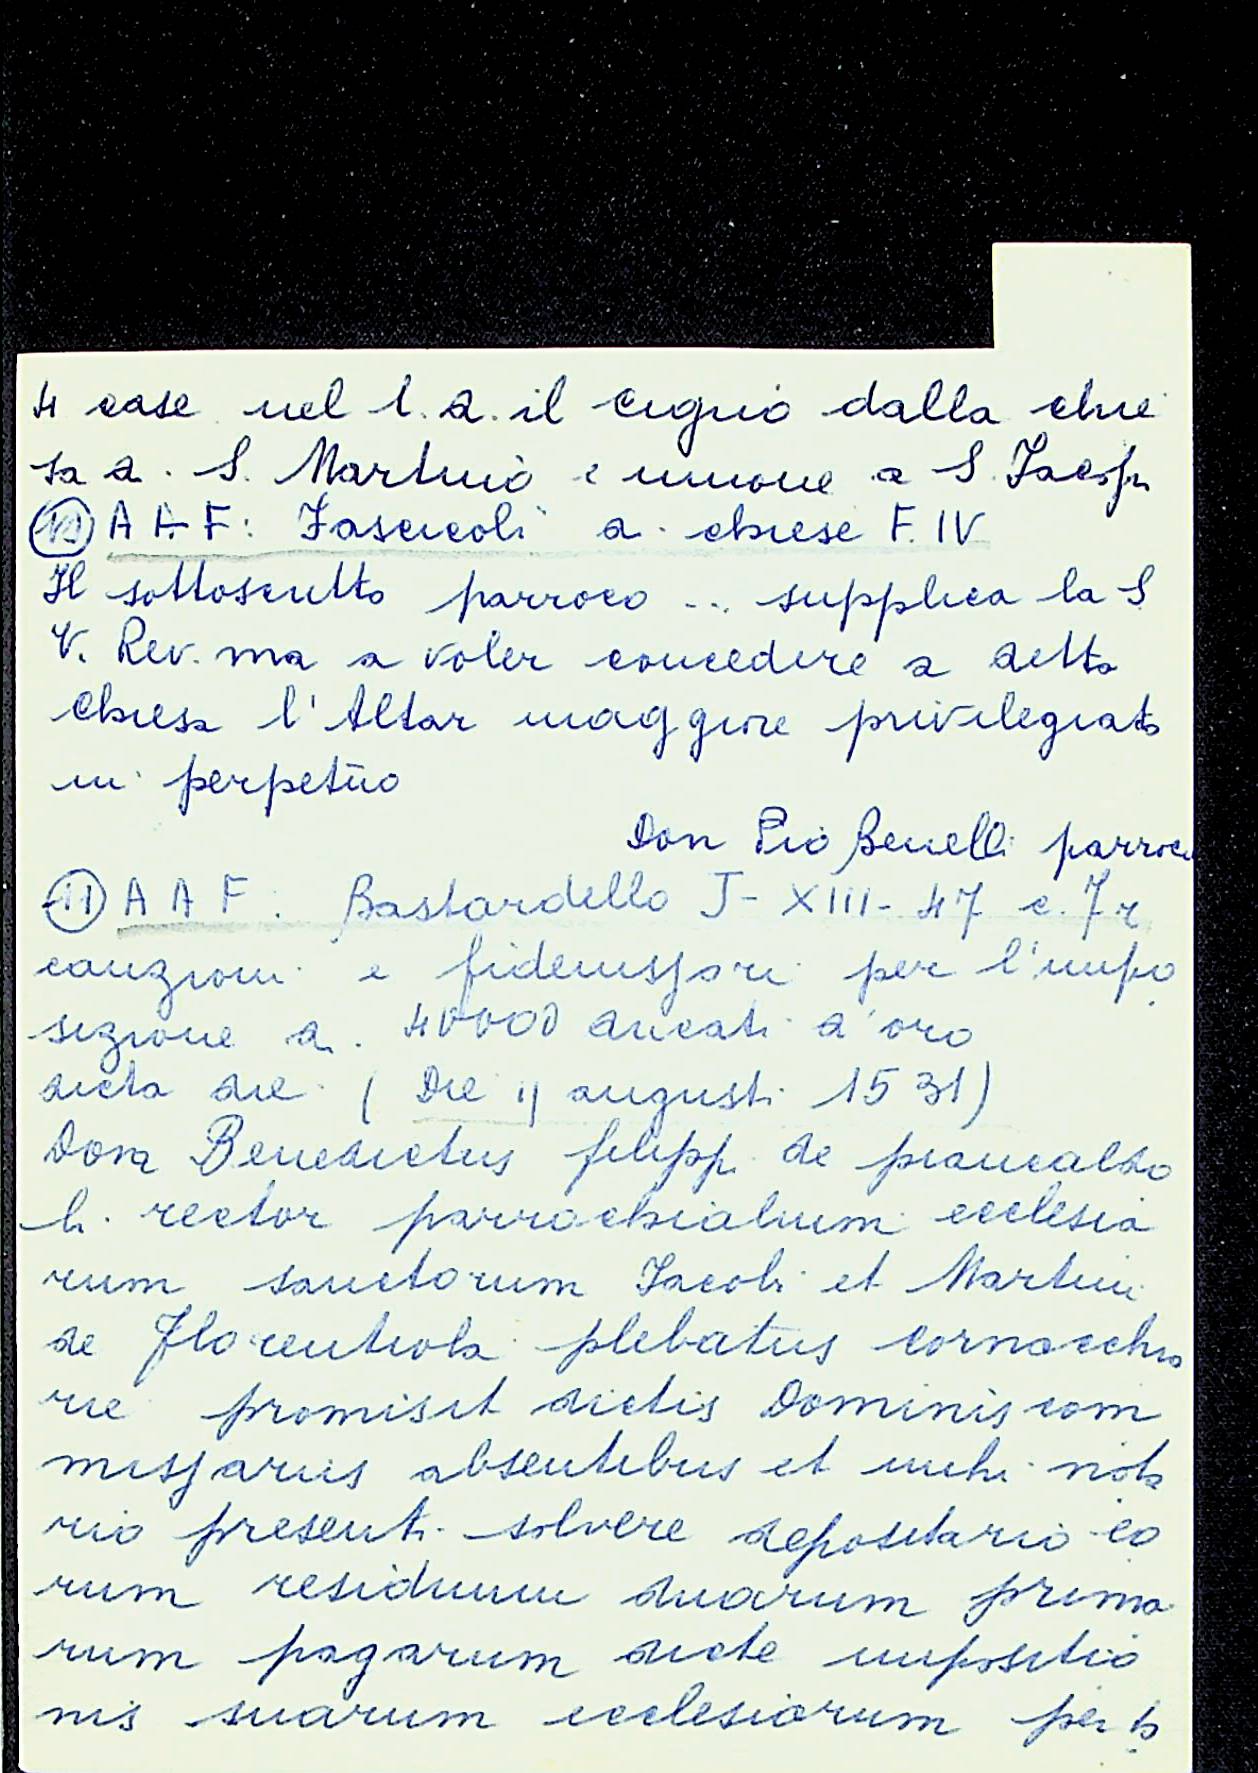 4 case nel l. d. il cignio dalla chie
sa d. S. Martino e unione a S. Jacopo
10 A A F: Fascicoli d. chiese F. IV
Il sottoscritto parroco ... supplica la S
V. Rev.ma a voler concedere a detta
chiesa l'Altar maggiore privilegiato
in perpetuo
Don Pio Benelli parroco
11 A A F: Bastardello J-XIII-47 c. 7r
cauzioni e fideiussori per l'impo
sizione d. 40000 ducati d'oro
dicta die (Die 11 augusti 1531)
Dom Benedictus filipp. de piancaldo
li rector parrochialium ecclesia
rum sanctorum Iacobi et Martini
de Florentiola plebatus cornacchia
rie promisit dictis Dominis com
missariis absentibus et mihi nota
rio presenti solvere depositario eo
rum residuum duarum prima
rum pagarum dicte impositio
nis suarum ecclesiarum per